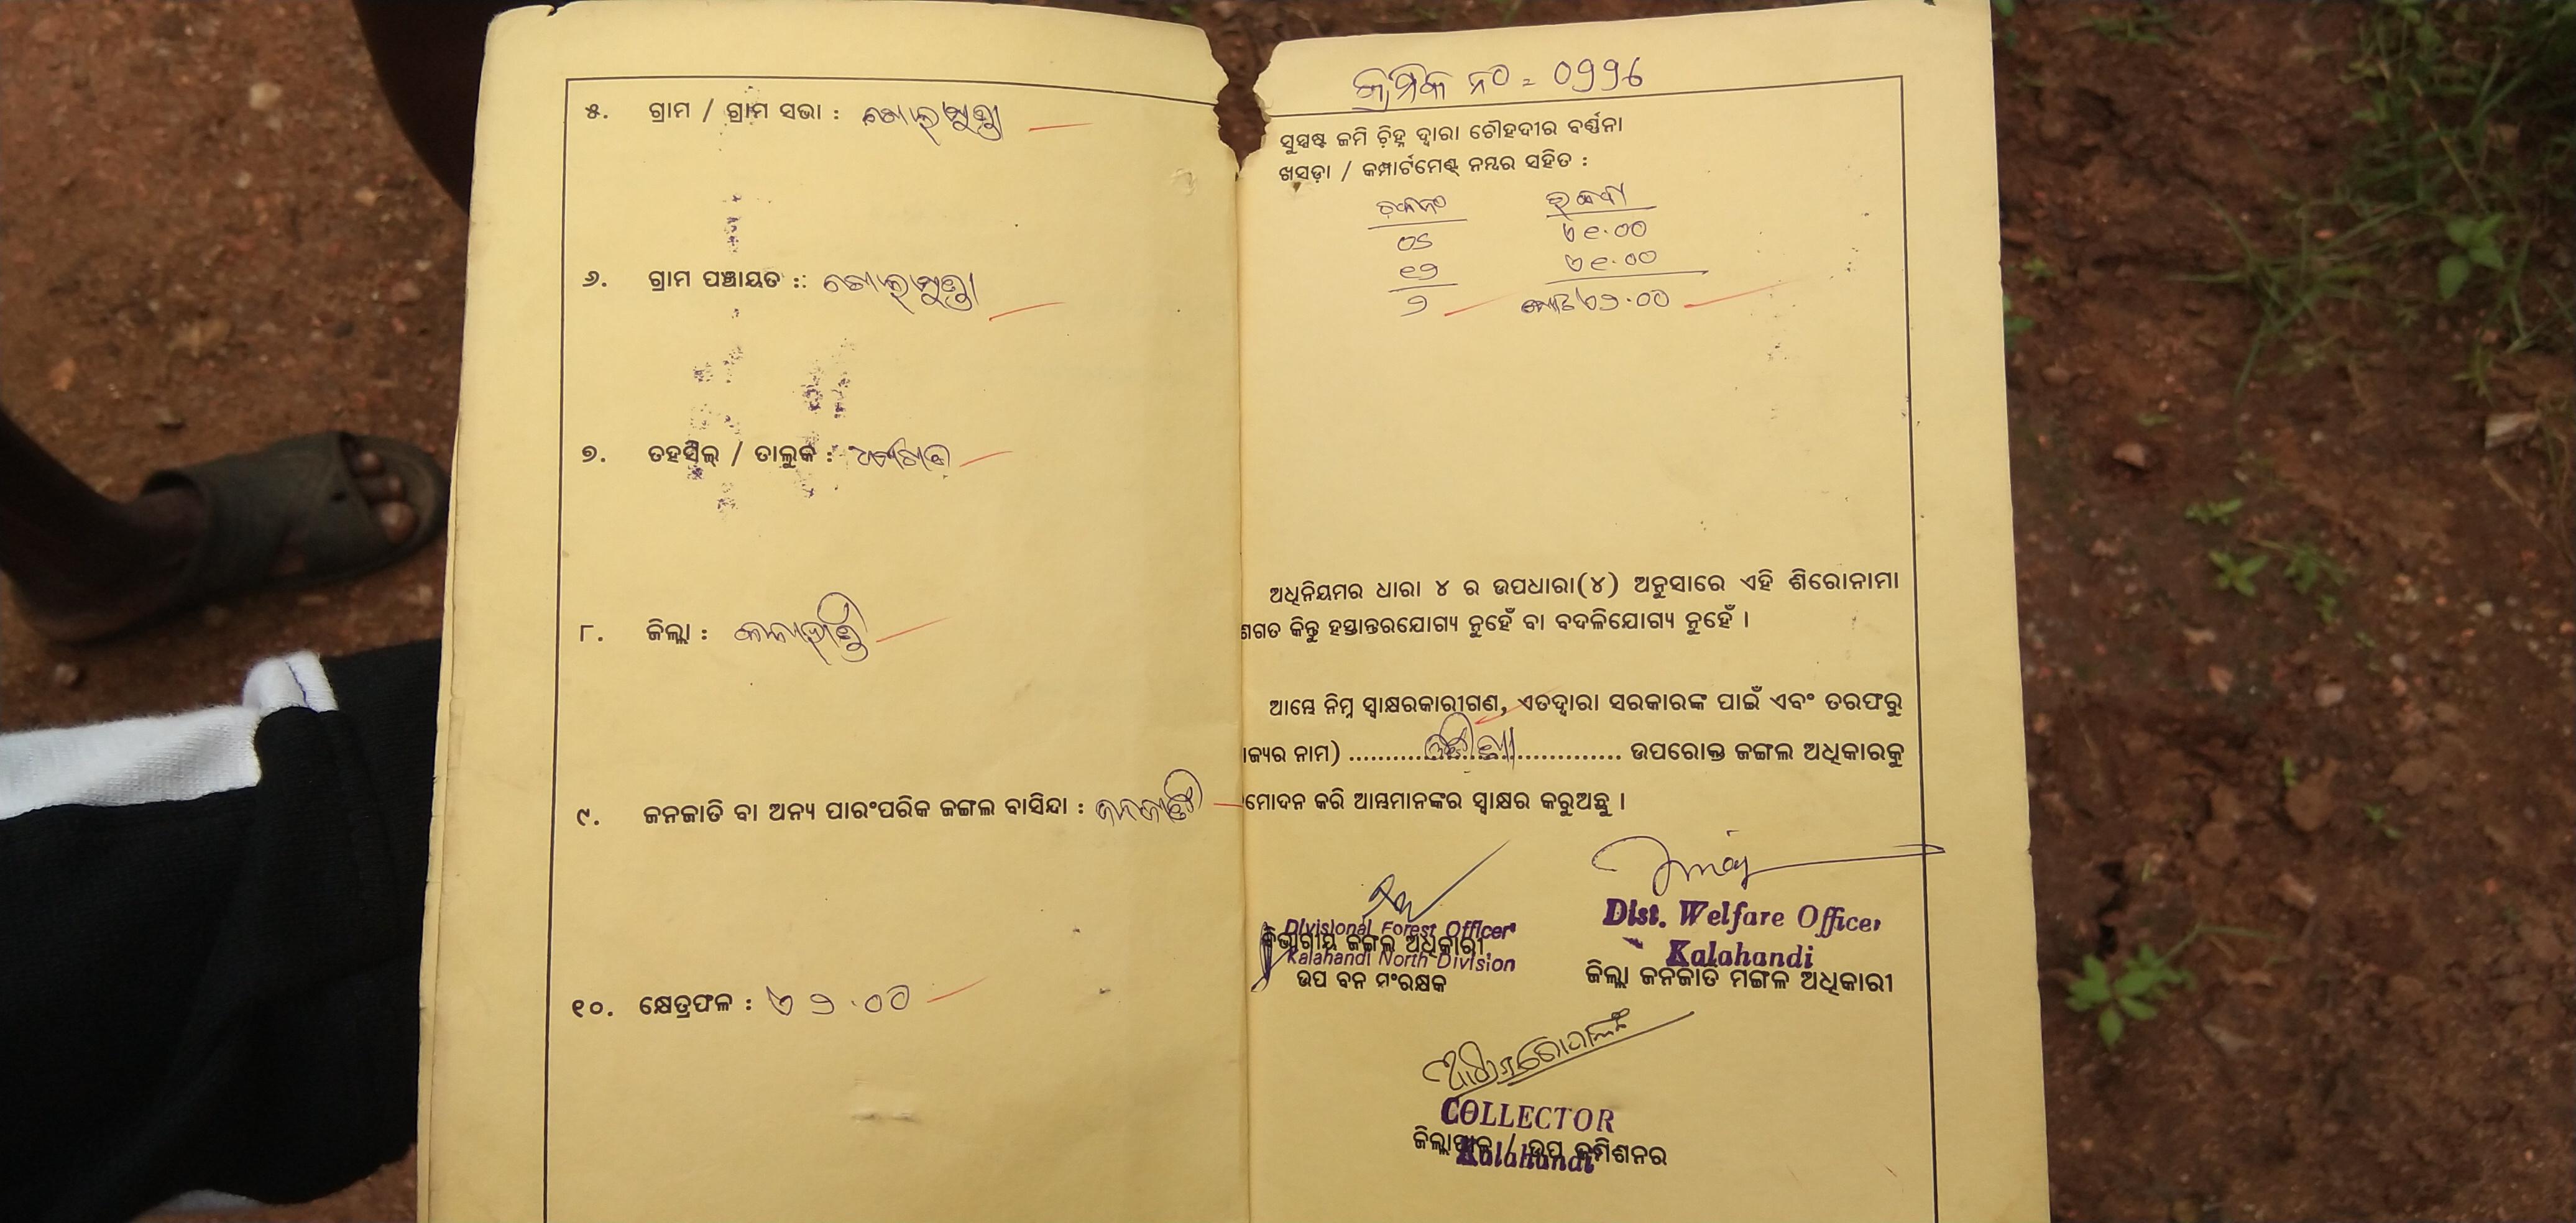 ୫. ଗ୍ରାମ / ଗ୍ରାମ ସଭା : ଗୋଲମୁଣ୍ଡା
୬. ଗ୍ରାମ ପଞ୍ଚାୟତ :: ଗୋଲମୁଣ୍ଡା
୭. ତହସିଲ୍ / ତାଲୁକ :
୮. ଜିଲ୍ଲା : କଳାହାଣ୍ଡି
୯. ଜନଜାତି ବା ଅନ୍ୟ ପାରଂପରିକ ଜଙ୍ଗଲ ବାସିନ୍ଦା : ଜନଜାତି
୧୦. କ୍ଷେତ୍ରଫଳ : ଏ ୨.୦୦
କ୍ରମିକ ନଂ = ୦୨୨୬
ସୁସ୍ପଷ୍ଟ ଜମି ଚିହ୍ନ ଦ୍ୱାରା ଚୌହଦୀର ବର୍ଣ୍ଣନା
ଖସଡ଼ା / କମ୍ପାର୍ଟମେଣ୍ଟ ନମ୍ବର ସହିତ :
ଏ ୧.୦୦
୧୨ ଏ ୧.୦୦
୨ ମୋଟ ଏ ୨.୦୦
ଅଧିନିୟମର ଧାରା ୪ ର ଉପଧାରା(୪) ଅନୁସାରେ ଏହି ଶିରୋନାମା
ଣଗତ କିନ୍ତୁ ହସ୍ତାନ୍ତରଯୋଗ୍ୟ ନୁହେଁ ବା ବଦଳିଯୋଗ୍ୟ ନୁହେଁ ।
ଆମ୍ଭେ ନିମ୍ନ ସ୍ୱାକ୍ଷରକାରୀଗଣ, ଏତଦ୍ୱାରା ସରକାରଙ୍କ ପାଇଁ ଏବଂ ତରଫରୁ
ାଜ୍ୟର ନାମ) ........ଓଡ଼ିଶା........ ଉପରୋକ୍ତ ଜଙ୍ଗଲ ଅଧିକାରକୁ
ମୋଦନ କରି ଆମ୍ଭମାନଙ୍କର ସ୍ୱାକ୍ଷର କରୁଅଛୁ ।
Divisional Forest Officer
ବିଭାଗୀୟ ଜଙ୍ଗଲ ଅଧିକାରୀ,
Kalahandi North Division
ଉପ ବନ ସଂରକ୍ଷକ
Dist. Welfare Officer,
Kalahandi
ଜିଲ୍ଲା ଜନଜାତି ମଙ୍ଗଳ ଅଧିକାରୀ
COLLECTOR
ଜିଲ୍ଲାପାଳ / ଉପ କମିଶନର
Kalahandi